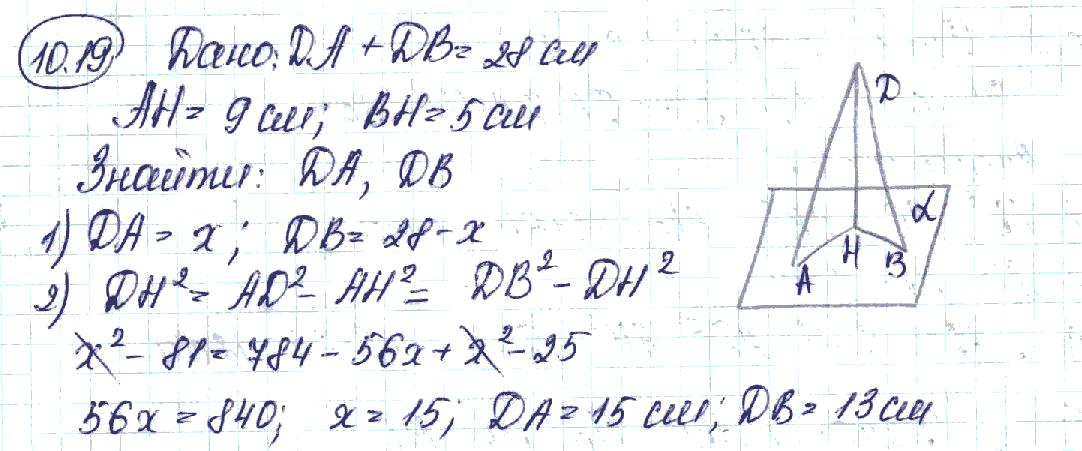 10.19 Дано: DA + DB = 28 см
AH = 9 см; BH = 5 см
Знайти: DA, DB
1) DA = x; DB = 28 - x
2) DH² = AD² - AH² = DB² - DH²
x² - 81 = 784 - 56x + x² - 25
56x = 840; x = 15; DA = 15 см; DB = 13 см
D
α
A H B